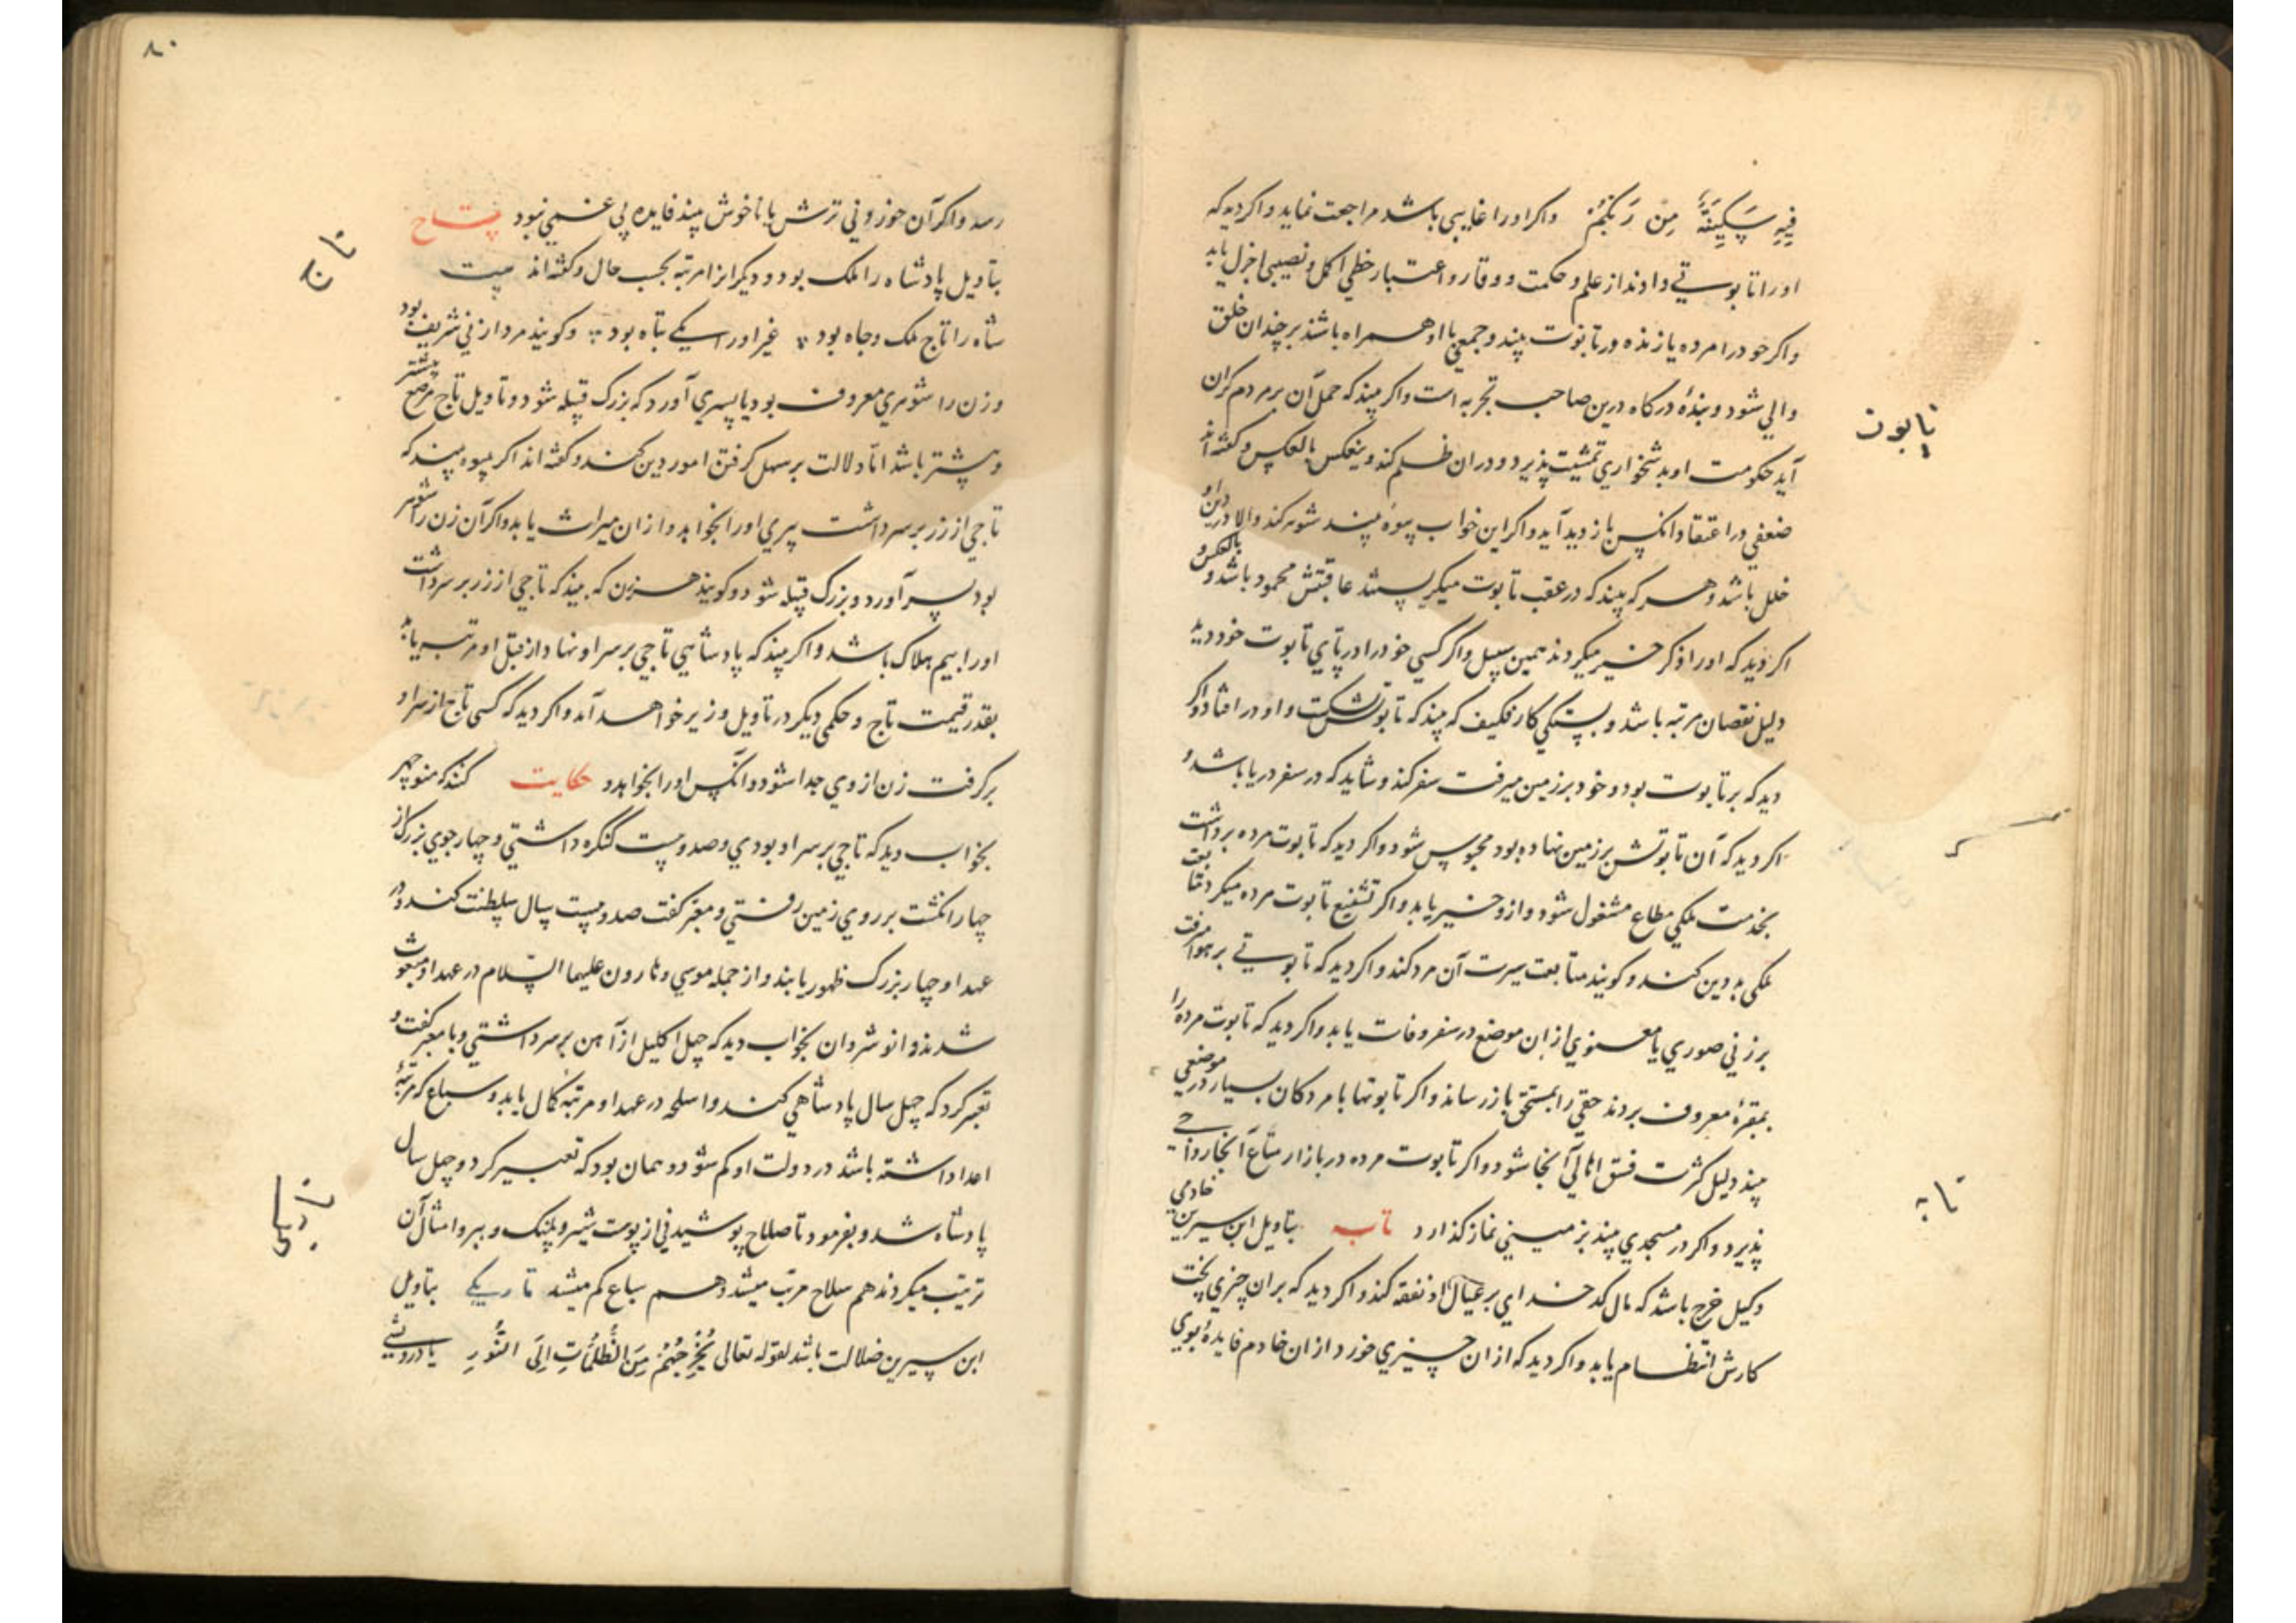 فِيهِ سَكِينَةٌ مِن رَبِّكُمْ واکر اورا غایبی باشد مراجعت نماید واکر دید که
اورا تابوتی دادند از علم و حکمت و وقار و اعتبار حظی اکمل و نصیبی اجزل یابد
واکر خودرا مرده یا زنده در تابوت بیند و جمعی با او همراه باشند بر چندان خلق
والی شود و بنده درکاه درین صاحب تجربه است واکر بیند که حمل آن بر مردم کران
تابوت
آید حکومت او بدشخواری تمشیت پذیرد و در آن ظلم کند و ینعکس بالعکس و کفته اند
ضعفی در اعتقاد آنکس بازدید آید واکر این خواب بیوه بیند شوهر کند والا در دین او
خلل باشد و هر که بیند که در عقب تابوت میکریستند عاقبتش محمود باشد و بالعکس و
اکر دید که اورا ذکر خیر میکردند همین سبیل واکر کسی خودرا در پای تابوت خود دید
دلیل نقصان مرتبه باشد و بستکی کار فکیف که بیند که تابوتش بشکست و او در افتاد واکر
دید که بر تابوت بود و خود بر زمین میرفت سفر کند و شاید که در سفر دریا باشد و
اکر دید که آن تابوتش بر زمین نهاده بود محبوس شود واکر دید که تابوت مرده برداشت
بخدمت ملکی مطاع مشغول شود و ازو خیر یابد واکر تشییع تابوت مرده میکرد متابعت
ملکی به دین کند و کویند متابعت سیرت آن مرد کند واکر دید که تابوتی بر هوا میرفت
بزرکی صوری یا معنوی از آن موضع در سفر وفات یابد واکر دید که تابوت مرده را
بمقبره معروف بردند حقی را بمستحق باز رساند واکر تابوتها با مردکان بسیار در موضعی
بیند دلیل کثرت فسق اهالی آنجا شود واکر تابوت مرده در بازار متاع آنجا رواجی
پذیرد واکر در مسجدی بیند بزمینی نماز کذارد تابه بتاویل ابن سیرین خادمی
تابه
وکیل خرج باشد که مال کدخدای بر عیال او نفقه کند واکر دید که بر آن چیزی پخت
کارش انتظام یابد واکر دید که از آن چیزی خورد از آن خادم فایده بوی
۸۰
رسد واکر آن خوردنی ترش یا ناخوش بیند فایده بی غمی نبود تاج
تاج
بتاویل پادشاه را ملک بود و دیکرانرا مرتبه بحسب حال و کفته اند بیت
شاه را تاج ملک و جاه بود غیر او را یکی تباه بود و کویند مرد را زنی شریف بود
و زن را شوهری معروف بود یا پسری آورد که بزرک قبیله شود و تاویل تاج مرصع بیشتر
و بیشتر باشد اما دلالت بر سهل کرفتن امور دین کند و کفته اند اکر بیوه بیند که
تاجی از زر بر سر داشت پیری اورا بخواهد و از آن میراث یابد واکر آن زن را شوهر
بود پسر آورد و بزرک قبیله شود و کویند هر زن که بیند که تاجی از زر بر سر داشت
اورا بیم هلاک باشد واکر بیند که پادشاهی تاجی بر سر او نهاد از قبل او مرتبه یابد
بقدر قیمت تاج و حکمی دیکر در تاویل وزیر خواهد آمد واکر دید که کسی تاج از سر او
برکرفت زن از وی جدا شود و آنکس اورا بخواهد و حکایت کنند که منوچهر
بخواب دید که تاجی بر سر او بودی و صد و بیست کنکره داشتی و چهار جوی بزرک از
چهار انکشت بر روی زمین رفتی و معبر کفت صد و بیست سال سلطنت کند و در
عهد او چهار بزرک ظهور یابند و از جمله موسی و هارون علیهما السلام در عهد او مبعوث
شدند و انوشروان بخواب دید که چهل اکلیل از آهن بر سر داشتی و با معبر کفت و
تعبیر کرد که چهل سال پادشاهی کند و اسلحه در عهد او مرتبه کمال یابد و سباع که مرتبه
اعدا داشته باشد در دولت او کم شود و همان بود که تعبیر کرد و چهل سال
پادشاه شد و بفرمود تا صلاح پوشیدنی از پوست شیر و پلنک و ببر و امثال آن
ترتیب میکردند هم سلاح مرتب میشد و هم سباع کم میشد تاریکی بتاویل
ابن سیرین ضلالت باشد لقوله تعالی يُخْرِجُهُمْ مِنَ الظُّلُمَاتِ إِلَى النُّورِ یا درویشی